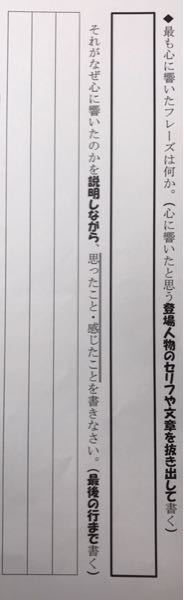 ◆最も心に響いたフレーズは何か。(心に響いたと思う登場人物のセリフや文章を抜き出して書く)
それがなぜ心に響いたのかを説明しながら、思ったこと・感じたことを書きなさい。(最後の行まで書く)